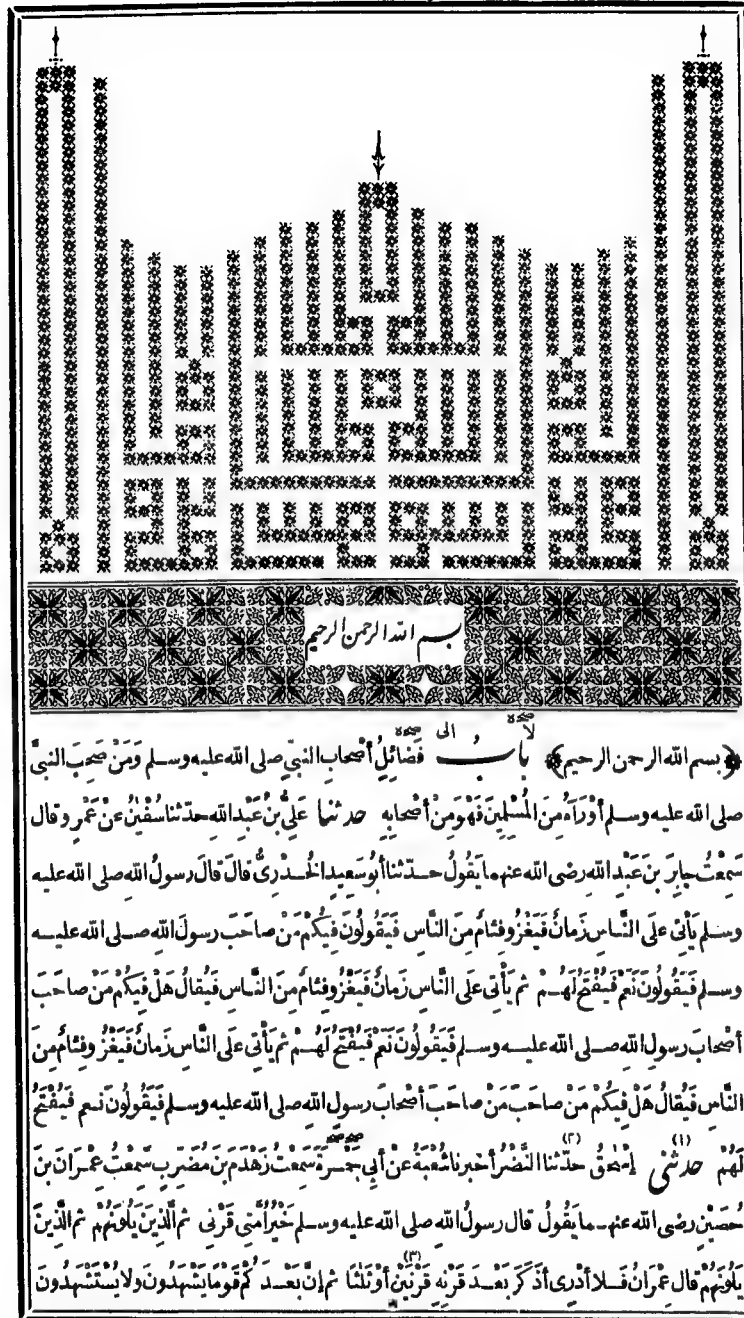 بسم الله الرحمن الرحيم
لا صحة
الى صحة
﴿بسم الله الرحمن الرحيم﴾ بابُ فَضَائِلِ أَصْحَابِ النبيِّ صلى الله عليه وسلم وَمَنْ صَحِبَ النبيَّ
صلى الله عليه وسلم أَوْ رَآهُ مِنَ المُسْلِمِينَ فَهْوَ مِنْ أَصْحَابِهِ حدثنا عَلِيُّ بنُ عَبْدِ اللهِ حدّثنا سُفْيٰنُ عنْ عَمْرٍو قال
سَمِعْتُ جابِرَ بنَ عَبْدِ اللهِ رضى الله عنهما يَقُولُ حدّثنا أبُو سَعِيدٍ الخُدْرِىُّ قالَ قالَ رسولُ اللهِ صلى الله عليه
وسلم يَأْتِى عَلَى النَّاسِ زَمانٌ فَيَغْزُو فِئَامٌ مِنَ النَّاسِ فَيَقُولُونَ فِيكُمْ مَنْ صاحَبَ رسولَ اللهِ صلى الله عليه
وسلم فَيَقُولُونَ نَعَمْ فَيُفْتَحُ لَهُمْ ثم يَأْتِى عَلَى النَّاسِ زَمانٌ فَيَغْزُو فِئَامٌ مِنَ النَّاسِ فَيُقالُ هَلْ فِيكُمْ مَنْ صاحَبَ
أَصْحابَ رسولِ اللهِ صلى الله عليه وسلم فَيَقُولُونَ نَعَمْ فَيُفْتَحُ لَهُمْ ثم يَأْتِى عَلَى النَّاسِ زَمانٌ فَيَغْزُو فِئَامٌ مِنَ
النَّاسِ فَيُقالُ هَلْ فِيكُمْ مَنْ صاحَبَ مَنْ صاحَبَ أَصْحابَ رسولِ اللهِ صلى الله عليه وسلم فَيَقُولُونَ نعم فَيُفْتَحُ
لَهُمْ (١) حدثنى إِسْحٰقُ (٢) حدّثنا النَّضْرُ أخبرنا شُعْبَةُ عنْ أَبِى جَمْرَةَ سَمِعْتُ زَهْدَمَ بنَ مُضَرِّبٍ سَمِعْتُ عِمْرَانَ بنَ
حُصَيْنٍ رضى الله عنهما يَقُولُ قال رسولُ اللهِ صلى الله عليه وسلم خَيْرُ أُمَّتِى قَرْنِى ثم الَّذِينَ يَلُونَهُمْ ثم الَّذِينَ
يَلُونَهُمْ قال عِمْرَانُ فَلا أَدْرِى أَذَكَرَ بَعْدَ قَرْنِهِ قَرْنَيْنِ أَوْ ثَلٰثًا (٣) ثم إِنَّ بَعْدَ كُمْ قَوْمًا يَشْهَدُونَ ولا يُسْتَشْهَدُونَ